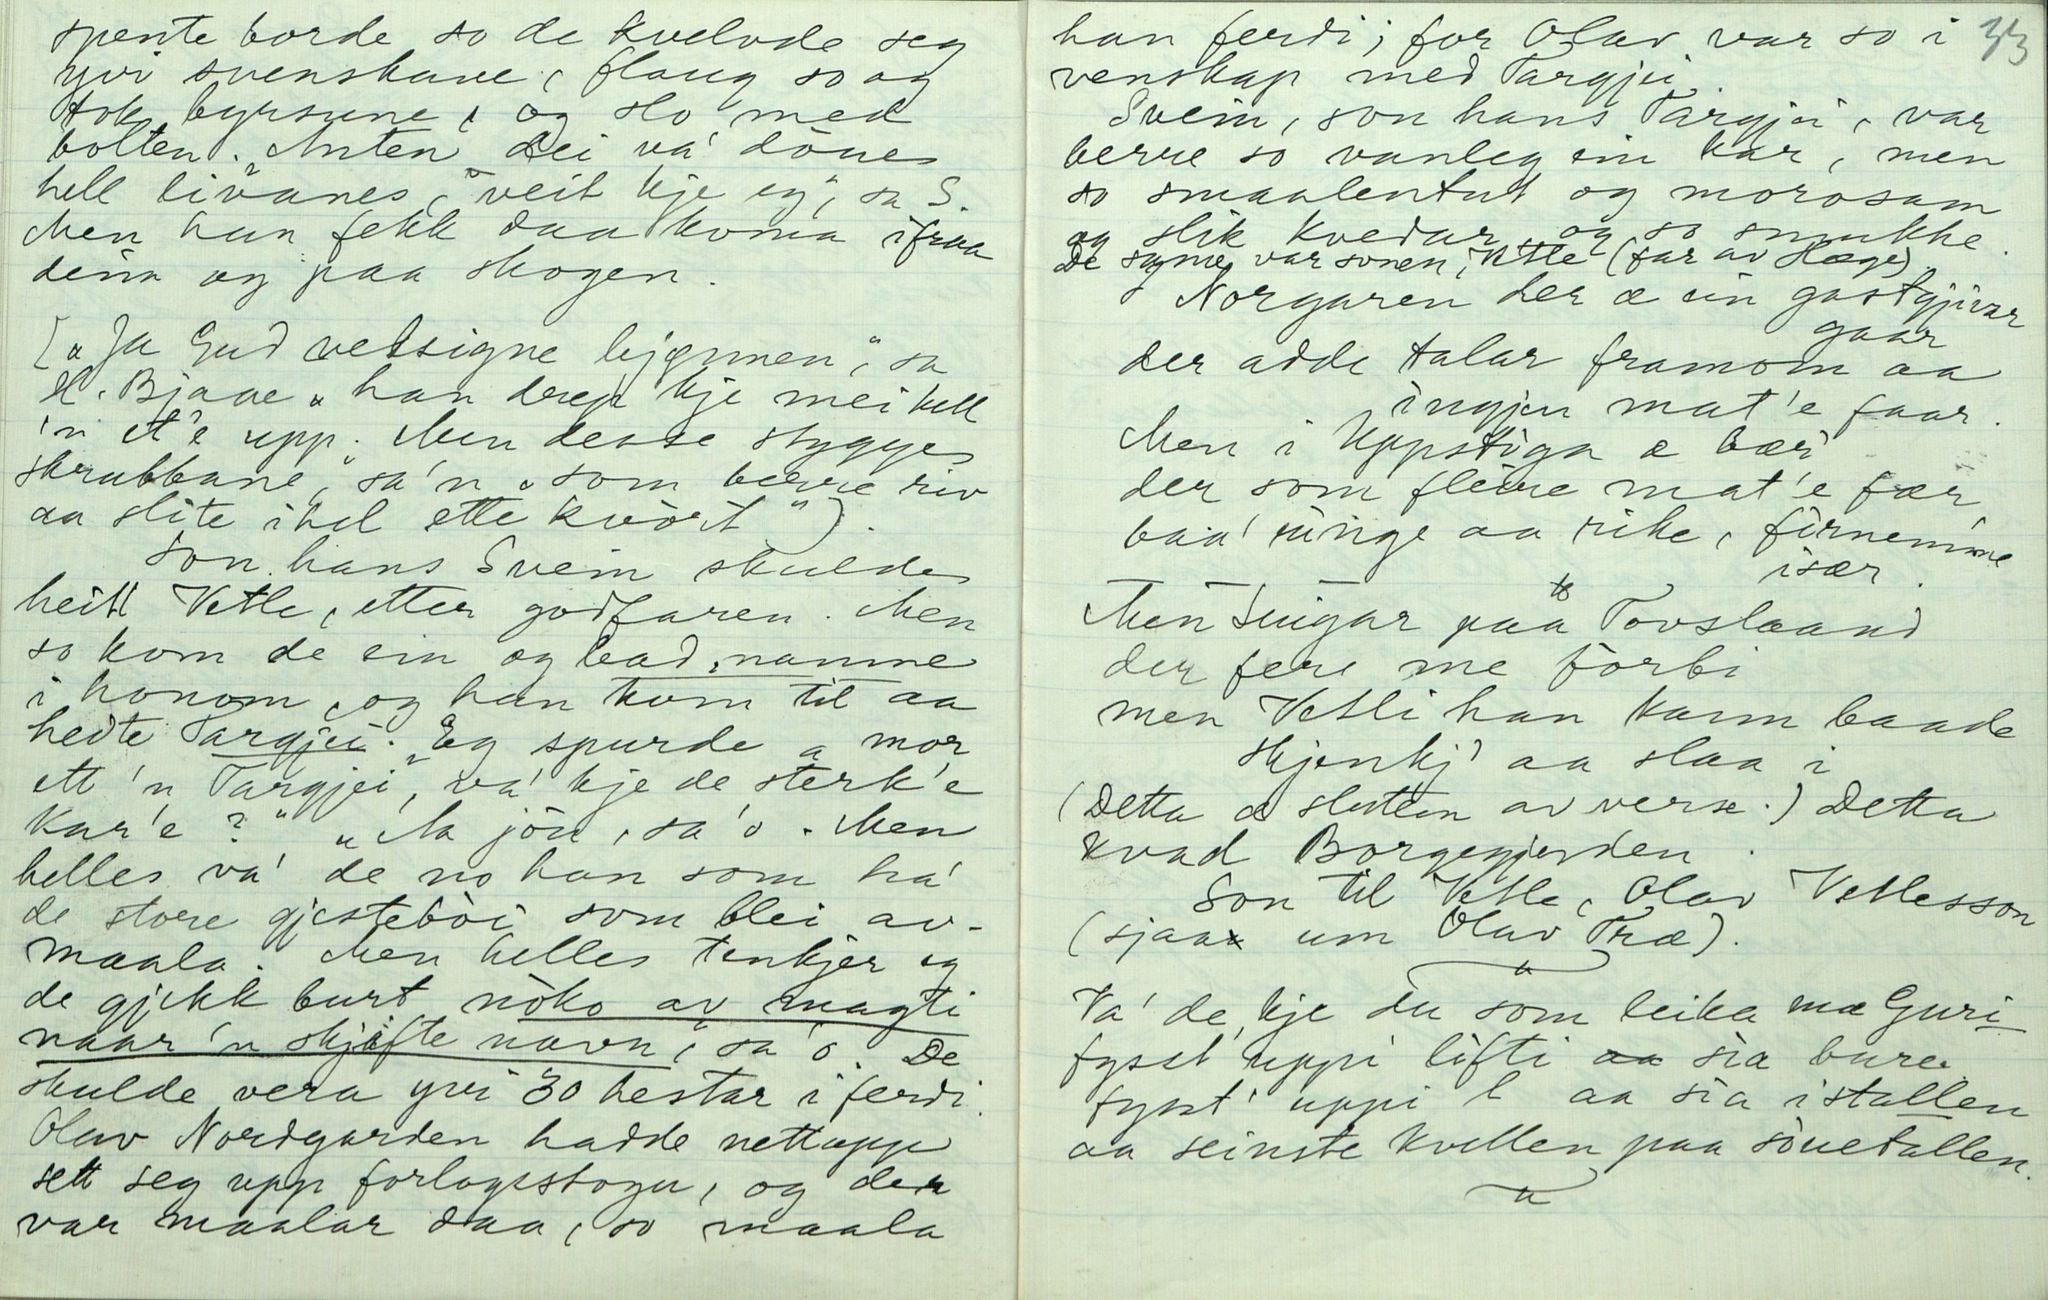 spente borde so de kvelvde seg
yvi svenskane, flaug so og
tok byrsune, og slo med
bolten. "Anten dei va' döue
hell livanes, veit kje eg", sa S.
Men han fekk daa koma ifraa
deim og paa skogen.
["Ja Gud velsigne bjynnen", sa
H. Bjaae "han drep kje mei hell
'n et'e upp. Men desse stygge
skrubbane", sa'n "som berre riv
aa slite ihel ette kvört").
Son hans Svein skulde
heitt Vetle, etter godfaren. Men
so kom de ein og bad namne
i honom, og han kom til aa
hedte Targjei. "Eg spurde a mor
ett 'n Targjei, va' kje de sterk'e
kar'e?" "Aa jöu, sa'o. Men
helles va' de no han som ha'
de store gjestebòi som blei av-
maala. Men helles tenkjer eg
de gjekk burt nöko av magti
naar 'n skjifte navn", sa'o. De
skulde vera yvi 30 hestar i ferdi.
Olav Nordgarden hadde nettupp
sett seg upp forlagsstogu, og der
var maalar daa, so maala
33
han ferdi; for Olav var so i
venskap med Targjei.
Svein, son hans Targjei, var
berre so vanleg ein kar, men
so smaalentut og morosam
og slik kvedar og so snukke.
De same var sonen, Vetle (far av Hæge)
Norgaren der æ ein gastgjivar
gaar
der adde talar framom aa
ingjen mat'e faar.
Men i Uppstiga æ bær'
der som fleire mat'e fær
baa' ringe aa rike, firnemme
især.
Men Steigar paa Tovslaand
der fere me forbi
men Vetli han kann baade
skjenkj' aa slaa i
(Detta æ slutten av verse.) Detta
kvad Borgegjerden.
Son til Vetle, Olav Vetlesson
(sjaa um Olav Træ).
Va' de kje du som leika mæ Guri
fyst' uppi lofti aa sia bure
fyst' uppi l aa sia i stallen
aa seinste kvellen paa söuetallen.